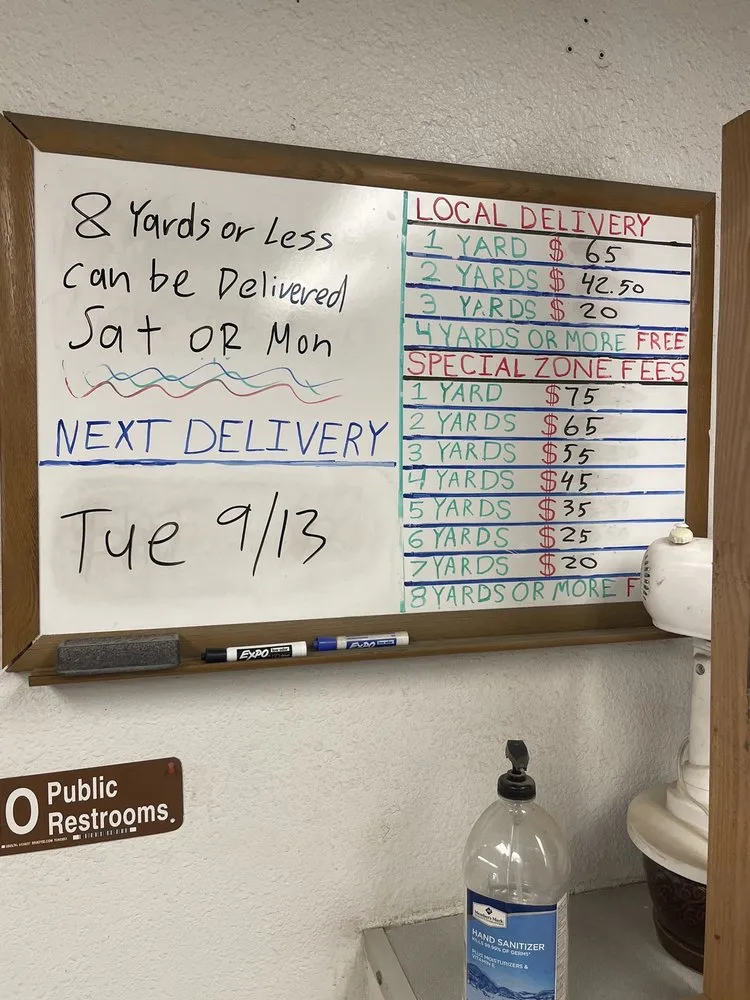 8 Yards or Less
can be Delivered
Sat OR Mon
NEXT DELIVERY
Tue 9/13
LOCAL DELIVERY
1 YARD $ 65
2 YARDS $ 42.50
3 YARDS $ 20
4 YARDS OR MORE FREE
SPECIAL ZONE FEES
1 YARD $75
2 YARDS $65
3 YARDS $55
4 YARDS $45
5 YARDS $35
6 YARDS $25
7 YARDS $20
8 YARDS OR MORE F
EXPO
EXPO
O Public
Restrooms.
Member's Mark
HAND SANITIZER
KILLS 99.99% OF GERMS*
PLUS MOISTURIZERS &
VITAMIN E